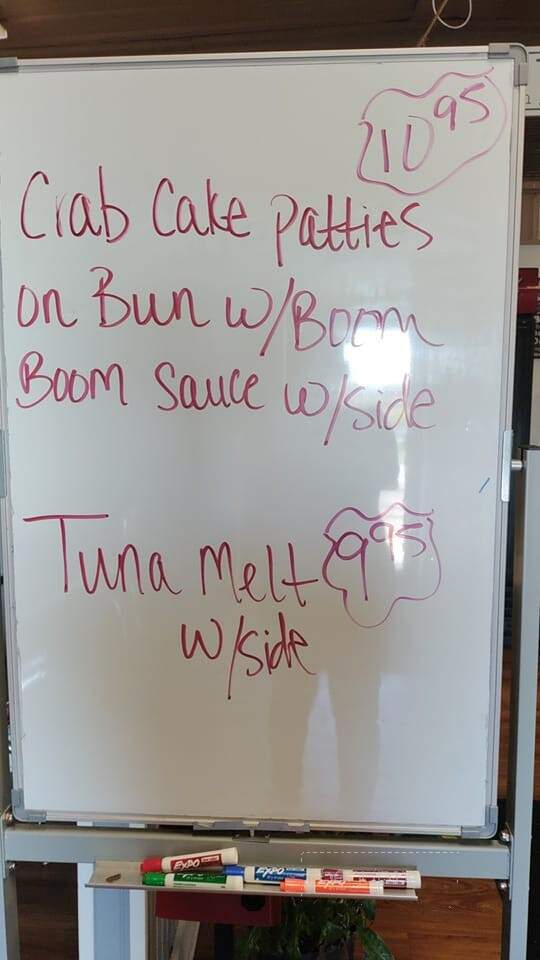 10 95
Crab Cake patties
on Bun w/Boom
Boom Sauce w/side
Tuna Melt 9 95
w/side
EXPO
EXPO
EXPO